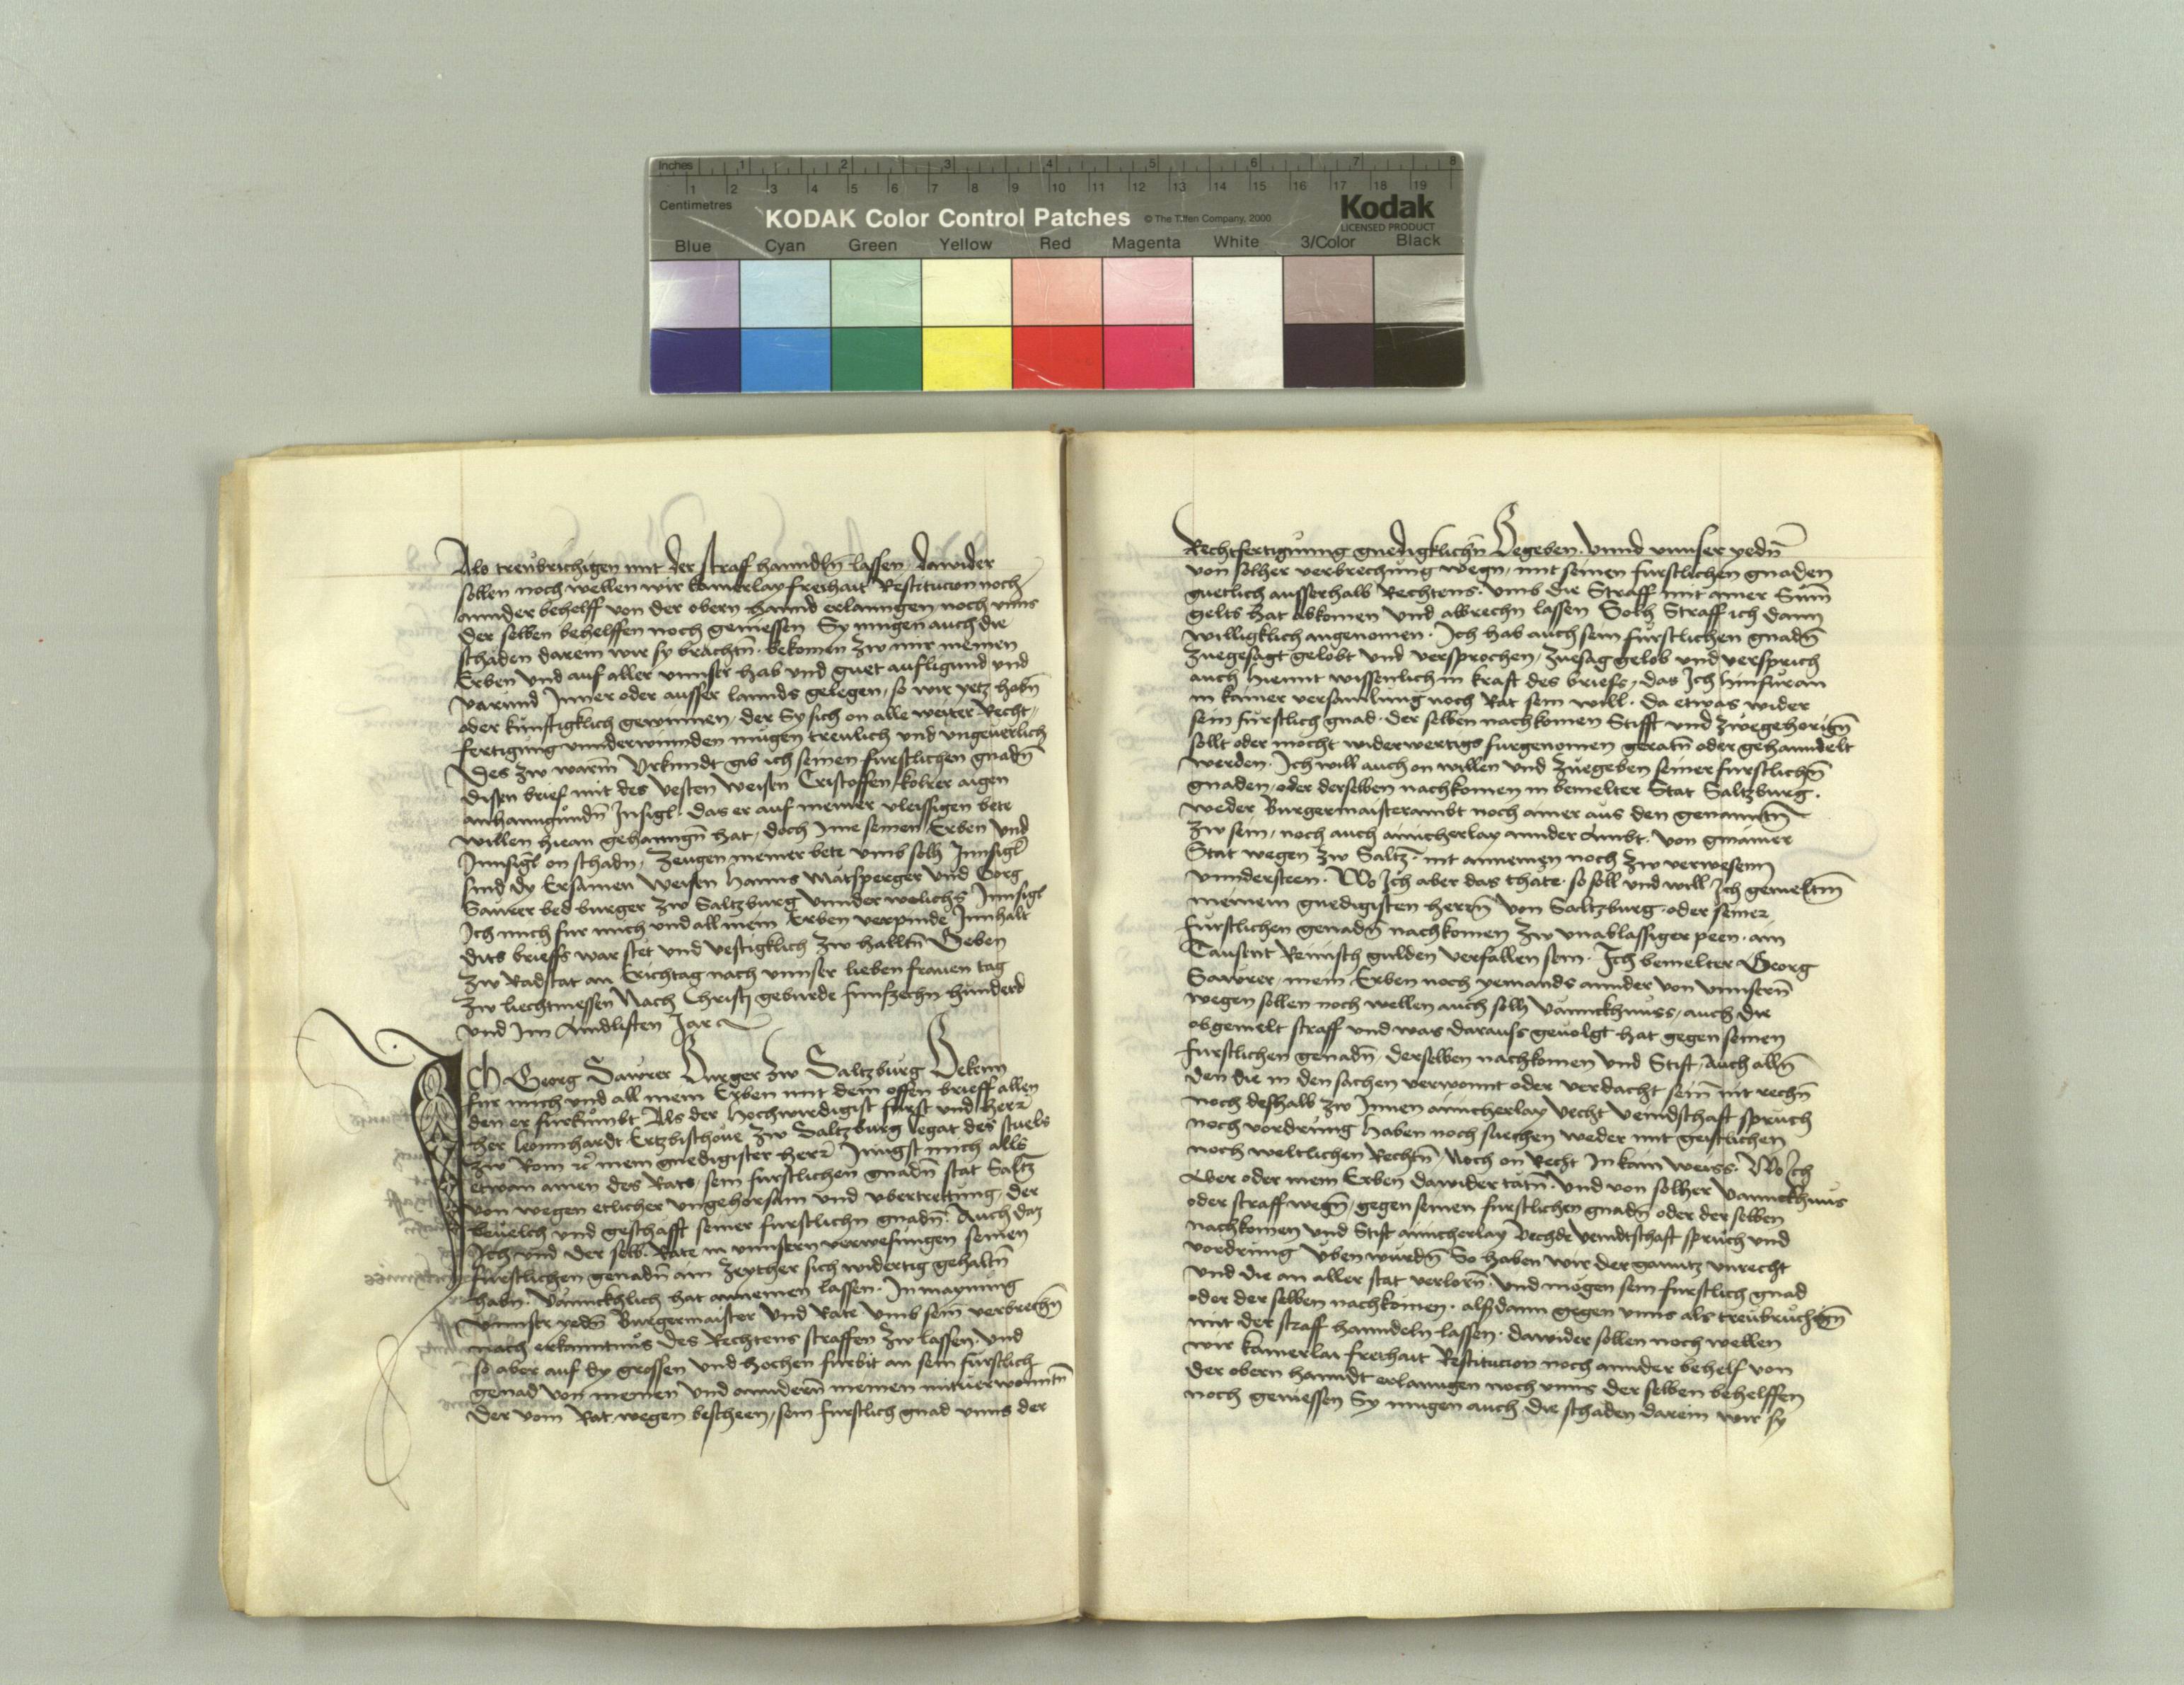 Inches 1 2 3 4 5 6 7 8
1 2 3 4 5 6 7 8 9 10 11 12 13 14 15 16 17 18 19
Centimetres
KODAK Color Control Patches © The Tiffen Company, 2000 Kodak
LICENSED PRODUCT
Blue Cyan Green Yellow Red Magenta White 3/Color Black
Als treubrichigen mit der straf hanndln̄ lassen, dawider
sollen noch wellen wir kainerlay freihait Restitucion noch
annder behelff von der obern hannd erlanngen noch vnns
der selben behelffen noch geniessen Sy mugen auch die
schäden darein wir sy brachtn̄ bekomen zw mir meinen
Erben vnd auf aller vnnser hab vnd guet aufligund vnd
varund Inner oder ausser lannds gelegen, so wir yetz habn̄
oder kunftigklich gewinnen, der Sy sich on alle weiter Recht-
fertigung vnnderwinnden mugen treulich vnd vngeuerlich
Des zw warm̄ Vrkundt gib ich seinen furstlichen gnadn̄
disen brief mit des Vesten weisen Cristoffen kolrer aigen
anhanngundn̄ Insigl. das er auf meiner vleissigen bete
willen hiean gehanngn̄ hat, doch Ime seinen Erben vnd
Innsigl on schadn, Zeugen meiner bete vmb solh Innsigl
sind dy Ersamen weisen Hanns Matsperger vnd Gorg
Saurer bed burger zw Saltzburg vnnder welichs Innsigl
Ich mich fur mich vnd all mein Erben verpinde Innhalt
dits brieffs war stet vnd vestigklich zw halltn̄ Geben
zw Radstat an Erichtag nach vnnser lieben frauen tag
zw liechtmessen Nach Christj geburde funfzechn hunderd
vnd Im Aindlisten Jar
Ich Georg Sawrer Burger zw Saltzburg Bekenn
fur mich vnd all mein Erben mit dem offen brieff allen
den er furkumbt Als der Hochwirdigist furst vnd herr
her Leonnhardt Ertzbischoue zw Saltzburg legat des stuels
zw Rom ⁊c mein gnedigister herr Jungst mich alls
etwan ainen des Rats, sein furstlichen gnadn̄ stat Saltz
von wegen etlicher vngehorsam vnd vbertrettung, der
beuelch vnd geschäfft seiner furstlichn gnadn̄. Auch das
Ich vnd der selb Rate in vnnsern verwesungen seinen
furstlichen genadn̄ ain zeyther sich widertig gehaltn̄
habn. Vännckhlich hat annemen lassen. In maynung
vnnser yedn̄ Burgermaister vnd Rate vmb sein verbrechn̄
nach erkanntnus des Rechtens straffen zw lassen, vnd
so aber auf dy grossen vnd hochen furbit an sein furstlich
genad von meinen vnd annderen̄ meinen mituerwonntn̄
der vom Rat wegen bescheen, sein furstlich gnad vnns der
Rechtfertigunng gnedigklichn̄ Begeben. Vnnd vnnser yedn̄
von solher verbrechung wegn, mit seinen furstlichen gnaden
guetlich ausserhalb Rechtens. Vmb die Straff mit ainer Sum̄
gelts hat abkomen vnd abrechn lassen Solh Straff ich dann
willigklich angenomen. Ich hab auch sein furstlichen gnadn̄
zuegesagt gelobt vnd versprochen, zuesag gelob vnd versprich
auch hiemit wissenlich in kraft des briefs, das Ich hinfuran
in kainer versamlung noch Rat sein will. da etwas wider
sein furstlich gnad. der selben nachkomen Stifft vnd zwegehorign̄
sollt oder mocht widerwertigs furgenomen geratn̄ oder gehanndelt
werden. Ich will auch on willen vnd zuegeben seiner furstlichn̄
gnaden, oder derselben nachkomen in bemelter Stat Saltzburg.
weder Burgermaisterambt noch ainer aus den genanntn̄
zw sein, noch auch ainicherlay annder Ambt. von gmainer
Stat wegen zw Saltz. nit annemen noch zw verwesenn
vnndersteen. Wo Ich aber das thäte. so soll vnd will Ich gemeltm̄
meinem gnedigisten herrn̄ von Saltzburg. oder seiner
furstlichen genadn̄ nachkomen zw vnablassiger peen. ain
Tausent Reinisch gulden verfallen sein. Ich bemelter Georg
Sawrer, mein Erben noch yemands annder von vnnsern̄
wegen sollen noch wellen auch solh vännckhnuss, auch die
obgemelt straff vnd was daraufs geuolgt hat gegen seinen
furstlichen genadn̄, derselben nachkomen vnd Stift, Auch alln̄
den die in den sachen verwonnt oder verdacht sein̄ nit rechn̄
noch deshalb zw Innen ainicherlay Vecht Veindschaft spruch
noch vordrung haben noch suechen weder mit geistlichen
noch weltlichen Rechtn̄, Noch on Recht In kain weiss. Wo Ich
Aber oder mein Erben dawider tätn̄. vnd von solher Vännckhnus
oder straff wegn̄, gegen seinen furstlichen gnadn̄ oder der selben
nachkomen vnd Stift ainicherlay Vechde Veindtschaft spruch vnd
vordrung vben wurdn̄ So haben wir der ganntz vnrecht
vnd die an aller stat verlorn̄. vnd mogen sein furstlich gnad
oder der selben nachkomen. alsdann gegen vnns als treubruchign̄
mit der straff hanndeln lassen. dawider sollen noch wellen
wir kainerlai freihait Restitucion noch annder behelf von
der obern hanndt erlanngen noch vnns der selben behelffen
noch geniessen Sy mugen auch die schäden darein wir sy